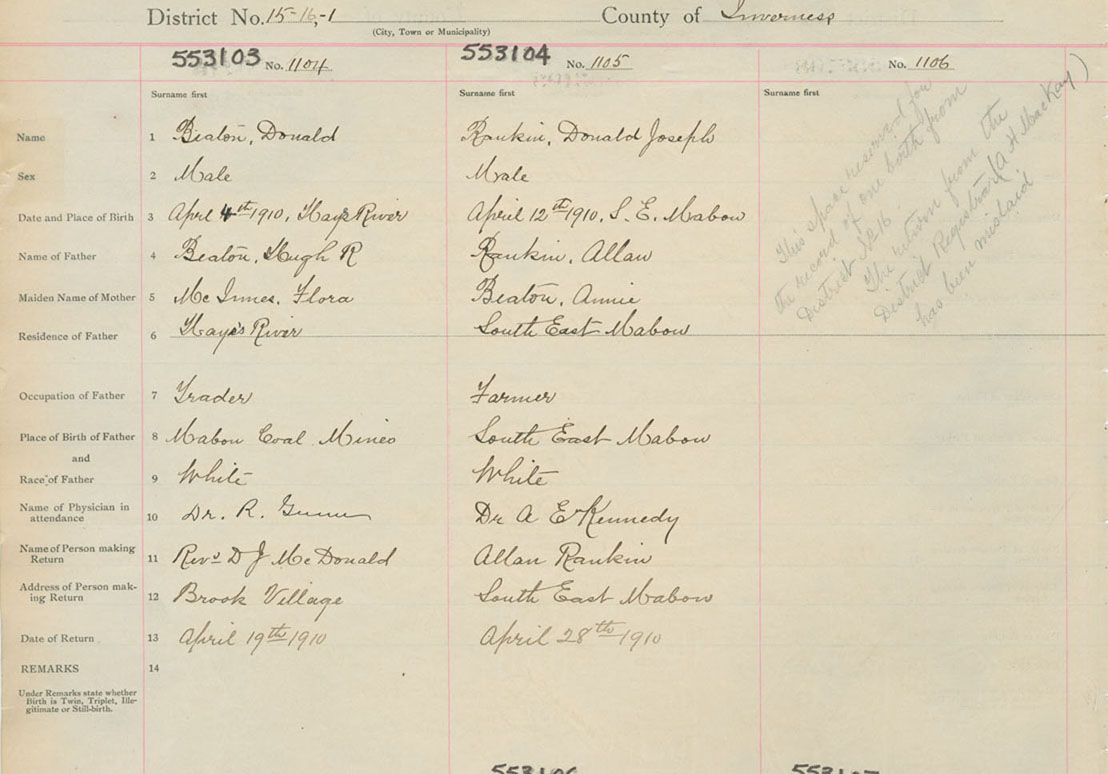 District No. 15-16-1 County of Inverness
(City, Town or Municipality)
553103 No. 1104 553104 No. 1105 No. 1106
Surname first Surname first Surname first
Name 1 Beaton, Donald Rankin, Donald Joseph
Sex 2 Male Male
Date and Place of Birth 3 April 4th 1910, Hay's River April 12th 1910, S. E. Mabou
Name of Father 4 Beaton, Hugh R Rankin, Allan
Maiden Name of Mother 5 McInnes, Flora Beaton, Annie
Residence of Father 6 Haye's River South East Mabou
Occupation of Father 7 Trader Farmer
Place of Birth of Father 8 Mabou Coal Mines South East Mabou
and
Race of Father 9 White White
Name of Physician in
attendance 10 Dr. R. Gunn Dr A E Kennedy
Name of Person making
Return 11 Revd D J McDonald Allan Rankin
Address of Person mak-
ing Return 12 Brook Village South East Mabou
Date of Return 13 April 19th 1910 April 28th 1910
REMARKS 14
Under Remarks state whether
Birth is Twin, Triplet, Ille-
gitimate or Still-birth.
This space reserved for
the record of one birth from
District
The return from the
District Registrar (A H MacKay)
has been mislaid